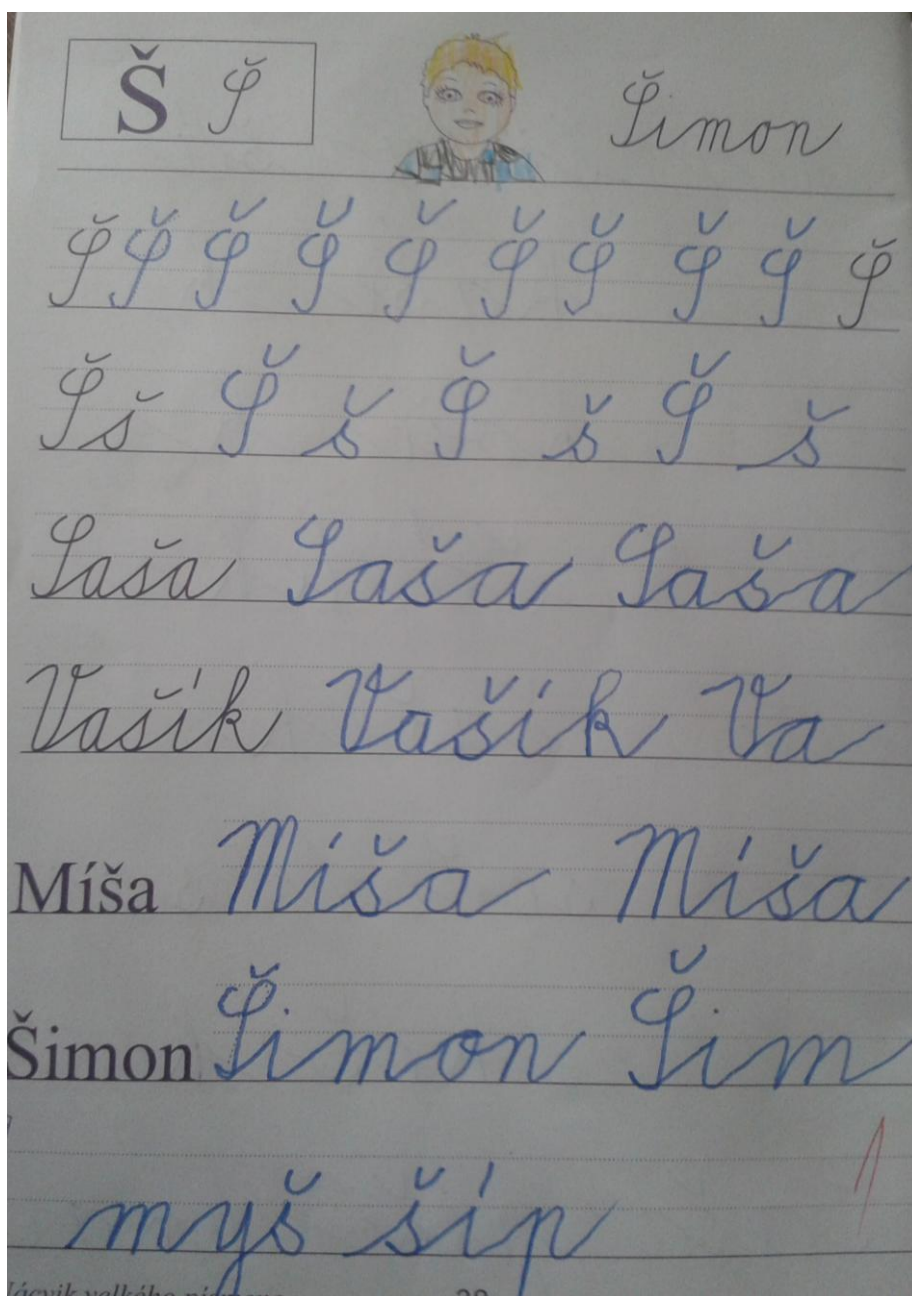 Š Š Šimon
Š Š Š Š Š Š Š Š Š Š
Š š Š š Š š Š š
Saša Saša Saša
Vašík Vašík Va
Míša Míša Míša
Šimon Šimon Šim
1
myš šíp
velkého